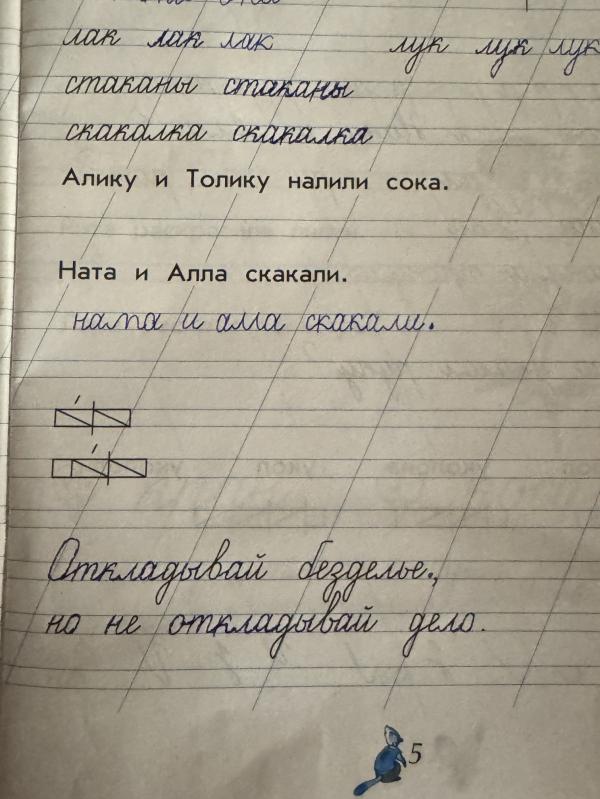 лак лак лак лук лук лук
стаканы стаканы
скакалка скакалка
Алику и Толику налили сока.
Ната и Алла скакали.
ната и алла скакали.
Откладывай безделье.,
но не откладывай дело.
5